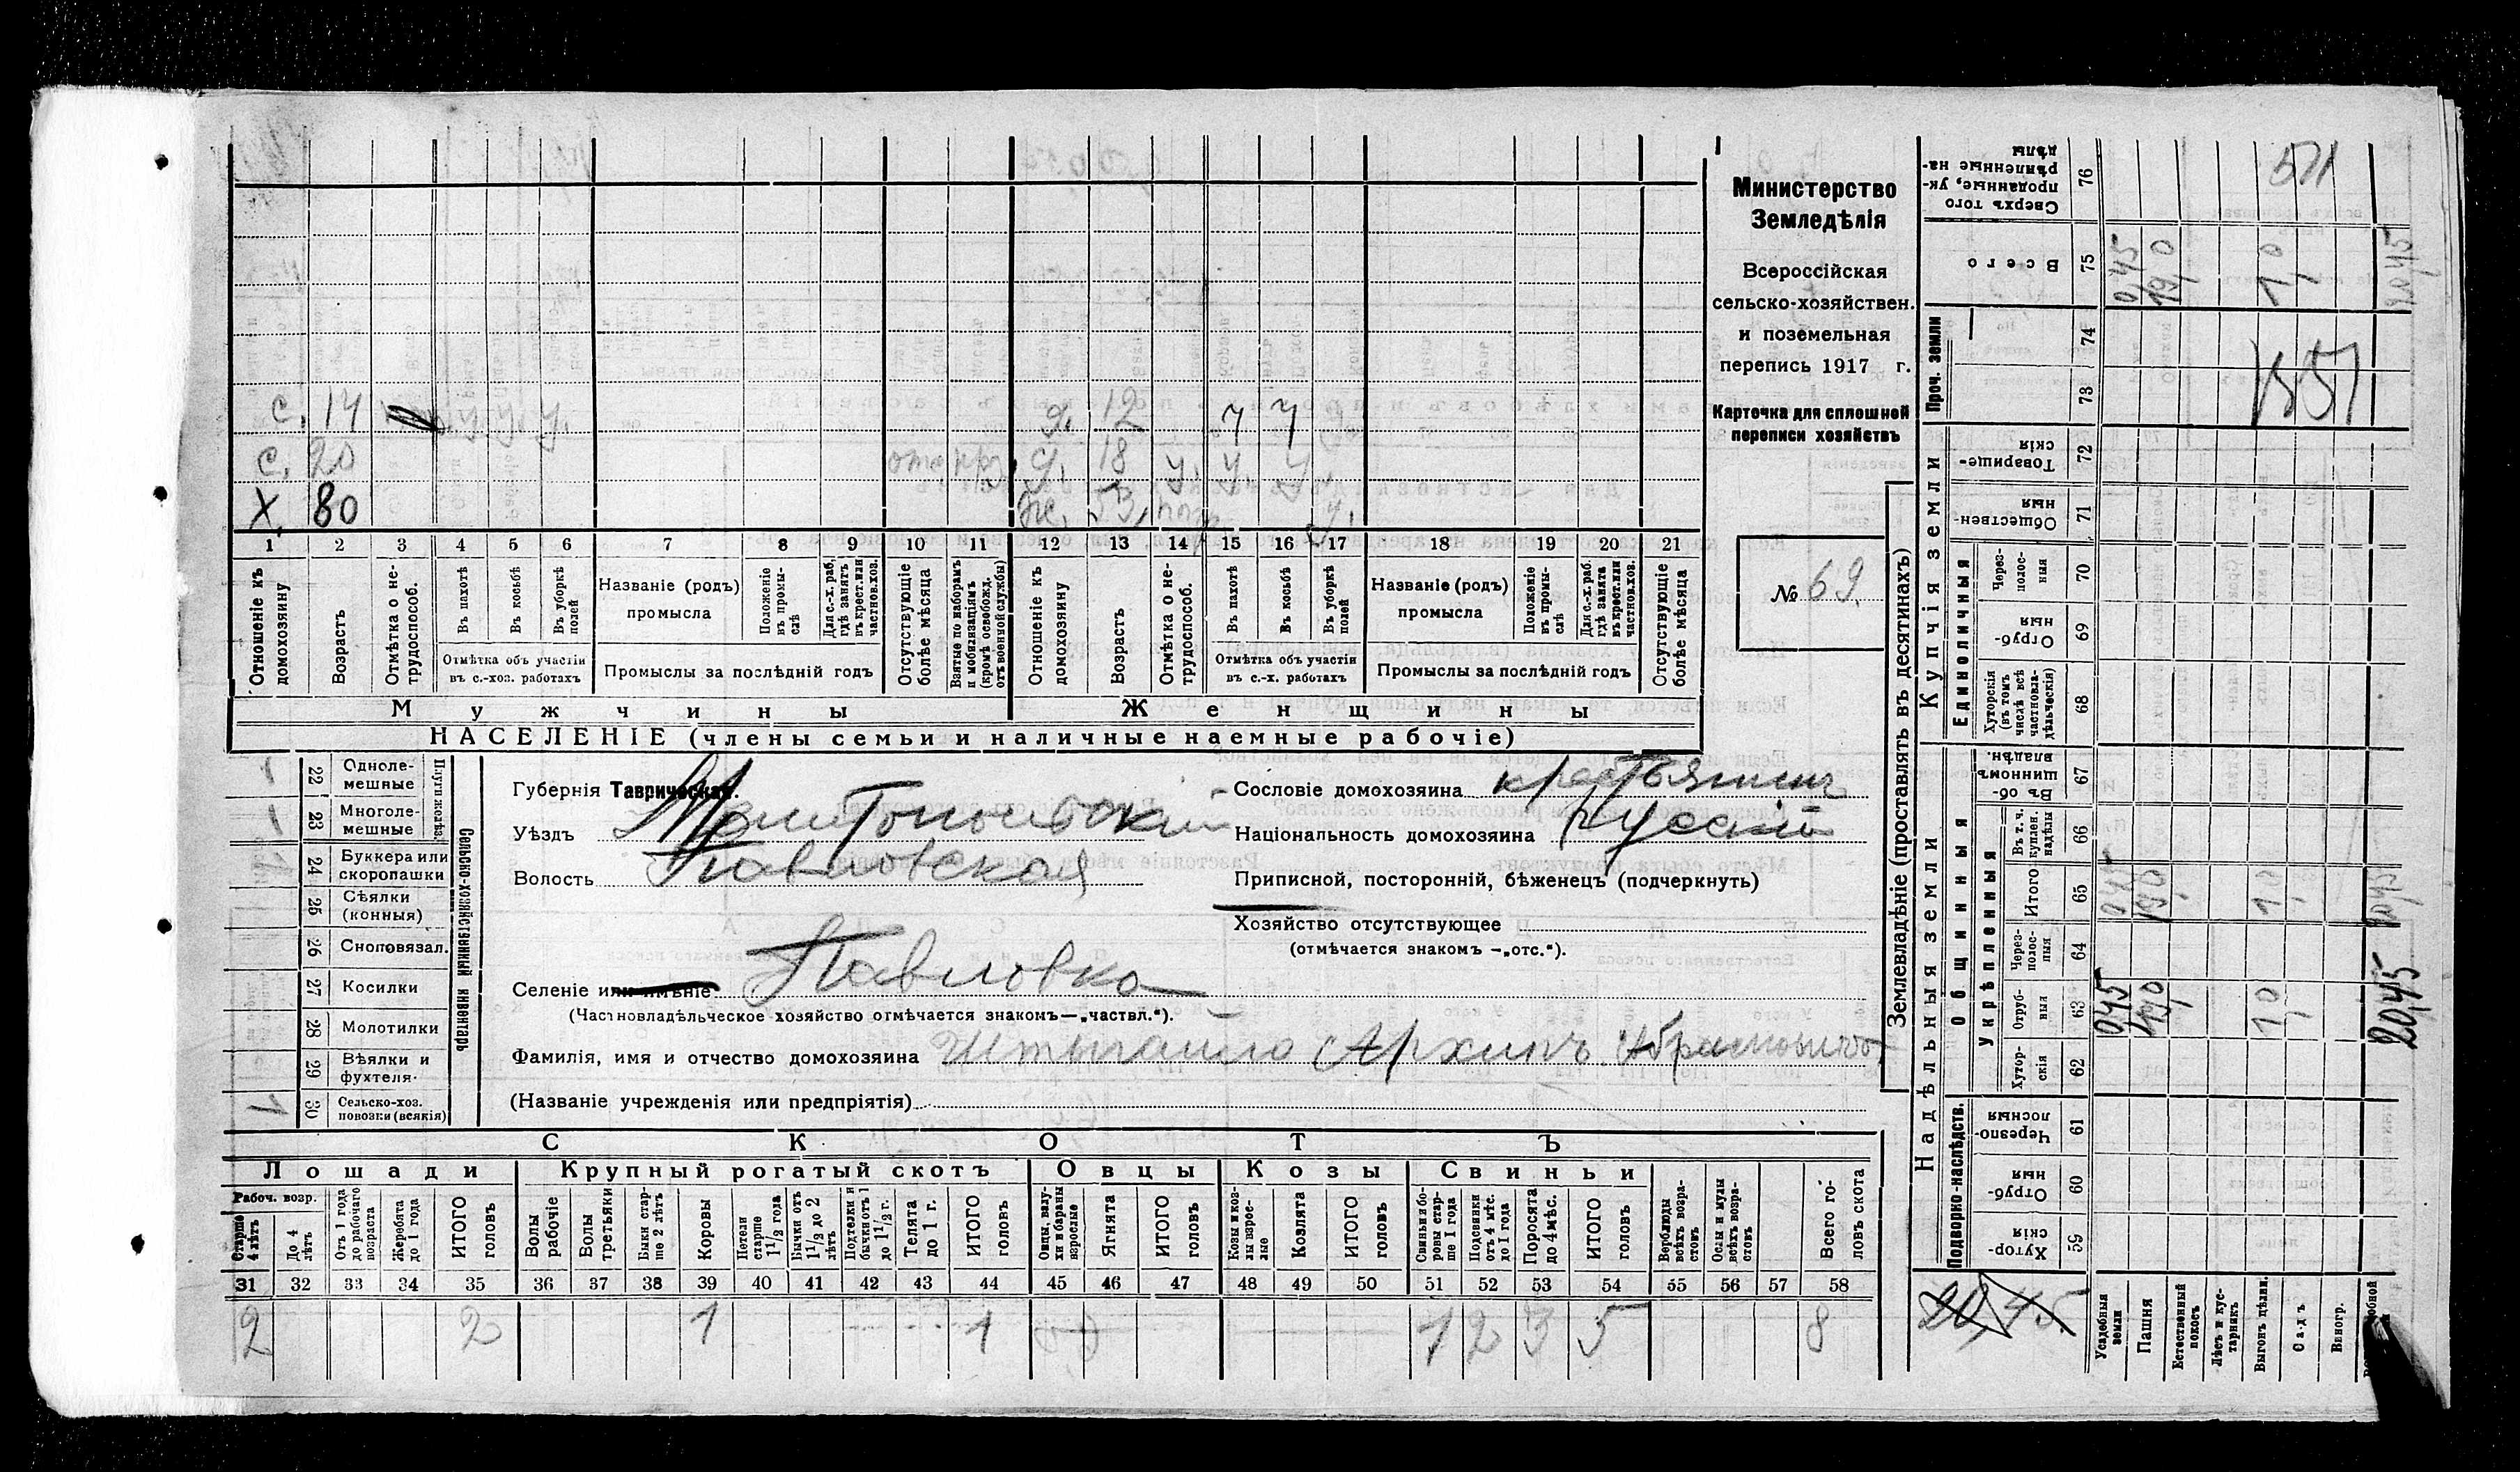 с. 14 у. у. у. д. 12 ч ч
с. 20 отс д. 18 у. у. у.
Х. 80 же. 53, у.
1 2 3 4 5 6 7 8 9 10 11 12 13 14 15 16 17 18 19 20 21
Отношеніе къ домохозяину
Возрастъ
Отмѣтка о не-трудоспособ.
Въ пахотѣ
Въ косьбѣ
Въ уборкѣ полей
Отмѣтка объ участіи въ с.-хоз. работахъ
Названіе (родъ) промысла
Положеніе въ промы-слѣ
Для с.-х. раб, гдѣ занятъ въ крест. или частнов. хоз.
Промыслы за послѣдній годъ
Отсутствующіе болѣе мѣсяца
Взятые по наборамъ и мобилизаціямъ (кромѣ освобожд. отъ военной службы)
Отношеніе къ домохозяину
Возрастъ
Отмѣтка о не-трудоспособ.
Въ пахотѣ
Въ косьбѣ
Въ уборкѣ полей
Отмѣтка объ участіи въ с.-х. работахъ
Названіе (родъ) промысла
Положеніе въ промы-слѣ
Для с.-х. раб. гдѣ занята въ крест. или частнов. хоз.
Промыслы за послѣдній годъ
Отсутствующіе болѣе мѣсяца
Мужчины Женщины
НАСЕЛЕНІЕ (члены семьи и наличные наемные рабочіе)
Министерство
Земледѣлія
Всероссійская
сельско-хозяйствен.
и поземельная
перепись 1917 г.
Карточка для сплошной
переписи хозяйствъ
№ 69.
Сельско-хозяйственный инвентарь
22 Однолемешные 1
23 Многолемешные 1
24 Буккера или скоропашки
25 Сѣялки (конныя)
26 Сноповязал.
27 Косилки
28 Молотилки
29 Вѣялки и фухтеля.
30 Сельско-хоз. повозки (всякія) 1
Губернія Таврическая.
Уѣздъ Мелитопольскій
Волость Павловская
Селеніе или имѣніе Павловка
(Частновладѣльческое хозяйство отмѣчается знакомъ—„частвл.“).
Фамилія, имя и отчество домохозяина Штыгайло Архипъ Абрамовичъ
(Названіе учрежденія или предпріятія)
Сословіе домохозяина крестьянинъ
Національность домохозяина Русскій
Приписной, посторонній, бѣженецъ (подчеркнуть)
Хозяйство отсутствующее
(отмѣчается знакомъ —„отс.“).
СКОТЪ
Лошади Крупный рогатый скотъ Овцы Козы Свиньи
Рабоч. возр.
Старше 4 лѣтъ
До 4 лѣтъ
Отъ 1 года до рабочаго возраста
Жеребята до 1 года
ИТОГО головъ
Волы рабочіе
Волы третьяки
Быки стар-ше 2 лѣтъ
Коровы
Петели старше 1 1/2 года
Бычки отъ 1 1/2 до 2 лѣтъ
Подтелки и бычки отъ 1 до 1 1/2 г.
Телята до 1 г.
ИТОГО головъ
Овцы, валу-хи и бараны взрослые
Ягнята
ИТОГО головъ
Козы и коз-лы взрос-лые
Козлята
ИТОГО головъ
Свиньи и бо-ровы стар-ше 1 года
Подсвинки отъ 4 мѣс. до 1 года
Поросята до 4 мѣс.
ИТОГО головъ
Верблюды всѣхъ возра-стовъ
Ослы и мулы всѣхъ возра-стовъ
Всего го-ловъ скота
31 32 33 34 35 36 37 38 39 40 41 42 43 44 45 46 47 48 49 50 51 52 53 54 55 56 57 58
2 2 1 1 1 2 3 5 8
Землевладѣніе (проставлять въ десятинахъ)
Надѣльныя земли
Купчія земли
Проч. земли
Подворко-наслѣдств.
Общинныя
Укрѣпленныя
Единоличныя
76 Сверхъ того проданные, ук-рѣпленные на-дѣлы 511
75 Всего 0,45 19,0 1,0 20,45
74
73 1551
72 Товарище-скія
71 Обществен-ныя
70 Через-полос-ныя
69 Отруб-ныя
68 Хуторскія (въ томъ числѣ всѣ частновла-дѣльческія)
67 Въ об-щинномъ владѣн.
66 Въ т. ч. куплен. надѣлы
65 Итого 0,45 19,0 1,0 20,45
64 Через-полос-ныя
63 Отруб-ныя 0,45 19,0 1,0 20,45
62 Хутор-скія
61 Черезпо-лосныя
60 Отруб-ныя
59 Хутор-скія
20,45.
Усадебныя земли
Пашня
Естественный покосъ
Лѣсъ и кус-тарникъ
Выгонъ цѣлин.
Садъ
Виногр.